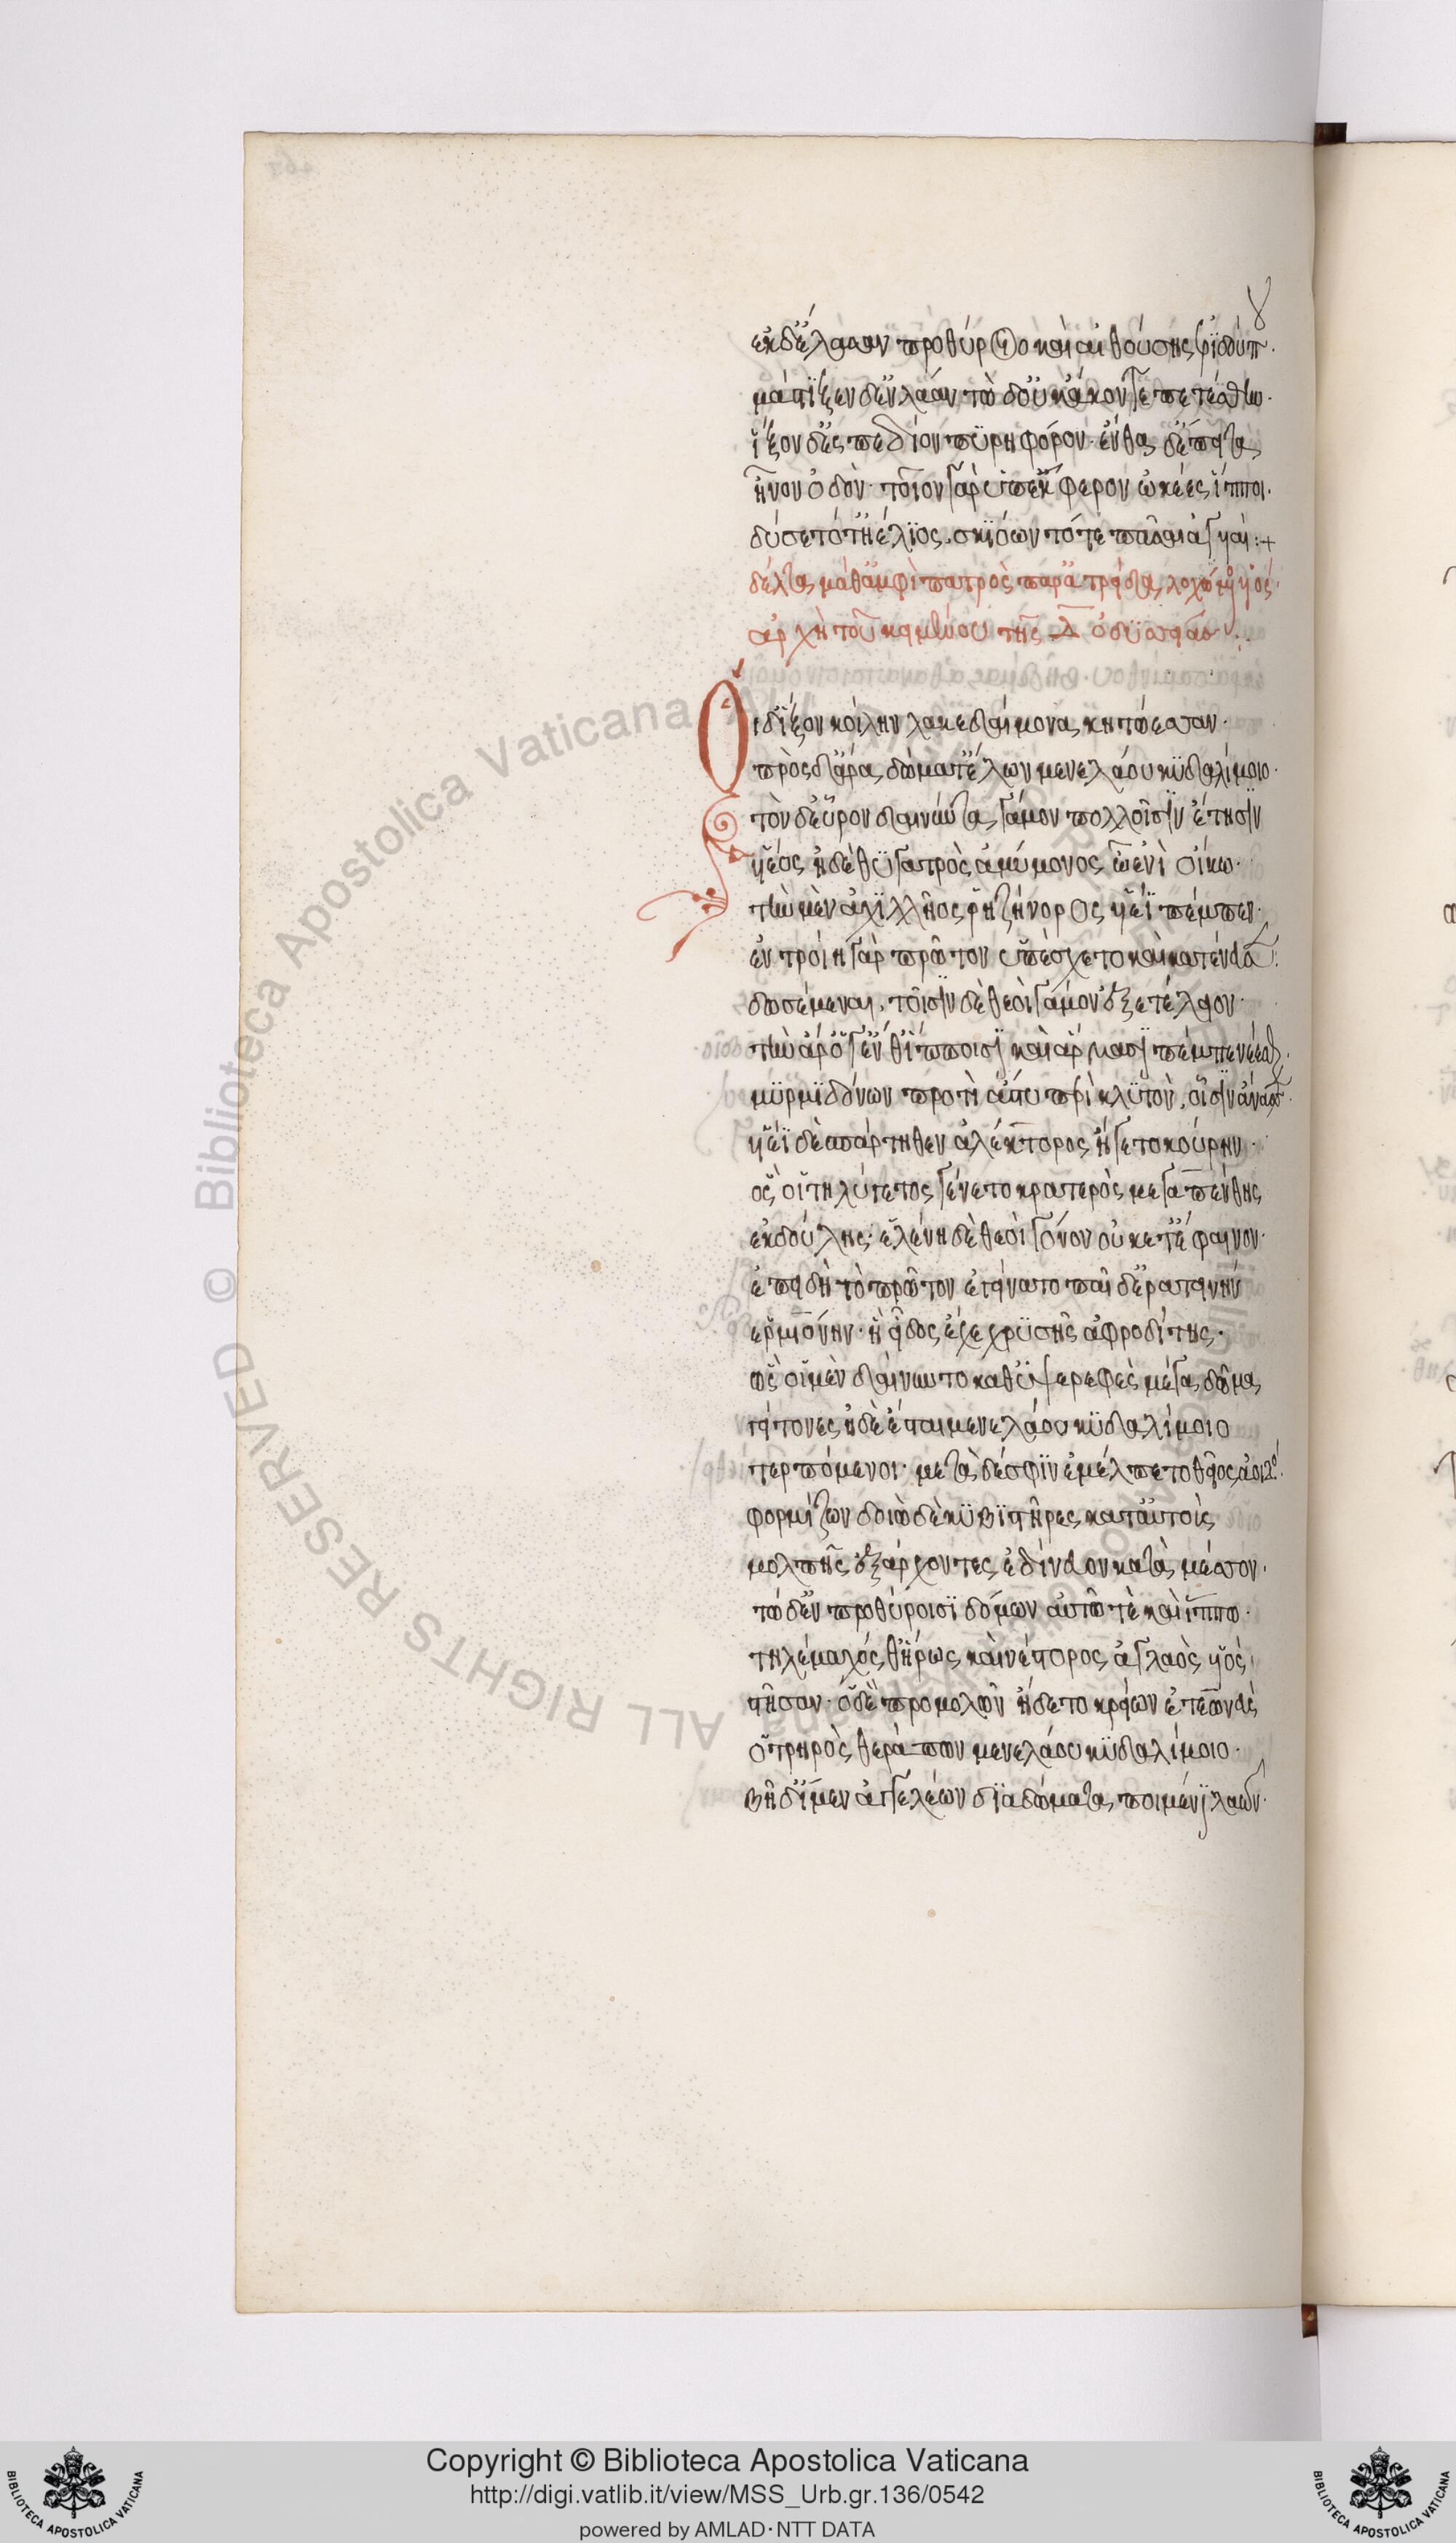 ἐκ δ' ἔλασαν προθύροιο καὶ αἰθούσης ἐριδούπ
μάστιξεν δ' ἐλάαν τὼ δ' οὐκ ἄκοντε πετέσθην.
ἷξον δ' ἐς πεδίον πυρηφόρον. ἔνθα δ' ἔπειτα
ἦνον ὁδόν. τοῖον γὰρ ὑπέκφερον ὠκέες ἵπποι.
δύσετό τ' ἠέλιος. σκιόωντό τε πᾶσαι ἀγυιαί:+
δέλτα
ἀρχὴ τοῦ κειμένου τῆς Δ ὀδυσσείας
Οἱ δ' ἷξον κοίλην λακεδαίμονα κητώεσσαν.
πρὸς δ' ἄρα δώματ' ἔλων μενελάου κυδαλίμοιο.
τὸν δ' εὗρον δαινύντα γάμον πολλοῖσιν ἔτησιν
υἱέος ἠδὲ θυγατρὸς ἀμύμονος ὧ ἐνὶ οἴκω.
τὴν μὲν ἀχιλλῆος ῥηξήνορος υἱέϊ πέμπεν.
ἐν τροίη γὰρ πρῶτον ὑπέσχετο καὶ κατένευσε.
δωσέμεναι. τοῖσιν δὲ θεοὶ γάμον ἐξετέλειον.
τὴν ἄρ' ὅγ' ἔνθ' ἵπποισι καὶ ἅρμασι πέμπε νέεσθαι.
μυρμιδόνων προτὶ ἄστυ περικλυτὸν. οἷσιν ἄνασσε.
υἱέϊ δὲ σπάρτηθεν ἀλέκτορος ἤγετο κούρην.
ὅς οἱ τηλύγετος γένετο κρατερὸς μεγαπένθης
ἐκ δούλης. ἑλένη δὲ θεοὶ γόνον οὐκέτ' ἔφαινον.
ἐπειδὴ τὸ πρῶτον ἐγείνατο παῖδ' ἐρατεινὴν
ἑρμιόνην. ἣ εἶδος ἔχε χρυσῆς ἀφροδίτης.
ὣς οἱ μὲν δαίνυντο καθ' ὑψερεφὲς μέγα δῶμα
γείτονες ἠδὲ ἔται μενελάου κυδαλίμοιο
τερπόμενοι. μετὰ δέ σφιν ἐμέλπετο θεῖος ἀοιδὸς.
φορμίζων δοιὼ δὲ κυβιστῆρες κατ' αὐτοὺς
μολπῆς ἐξάρχοντες ἐδίνευον κατὰ μέσσον.
τὼ δ' ἐν προθύροισι δόμων αὐτώ τε καὶ ἵππω.
τηλέμαχός θ' ἥρως καὶ νέστορος ἀγλαὸς υἱὸς
στῆσαν. ὁ δὲ προμολὼν ἴδετο κρείων ἐτεωνεὺς
ὀτρηρὸς θεράπων μενελάου κυδαλίμοιο.
βῆ δ' ἴμεν ἀγγελέων διὰ δώματα ποιμένι λαῶν.
Copyright © Biblioteca Apostolica Vaticana
http://digi.vatlib.it/view/MSS_Urb.gr.136/0542
powered by AMLAD·NTT DATA